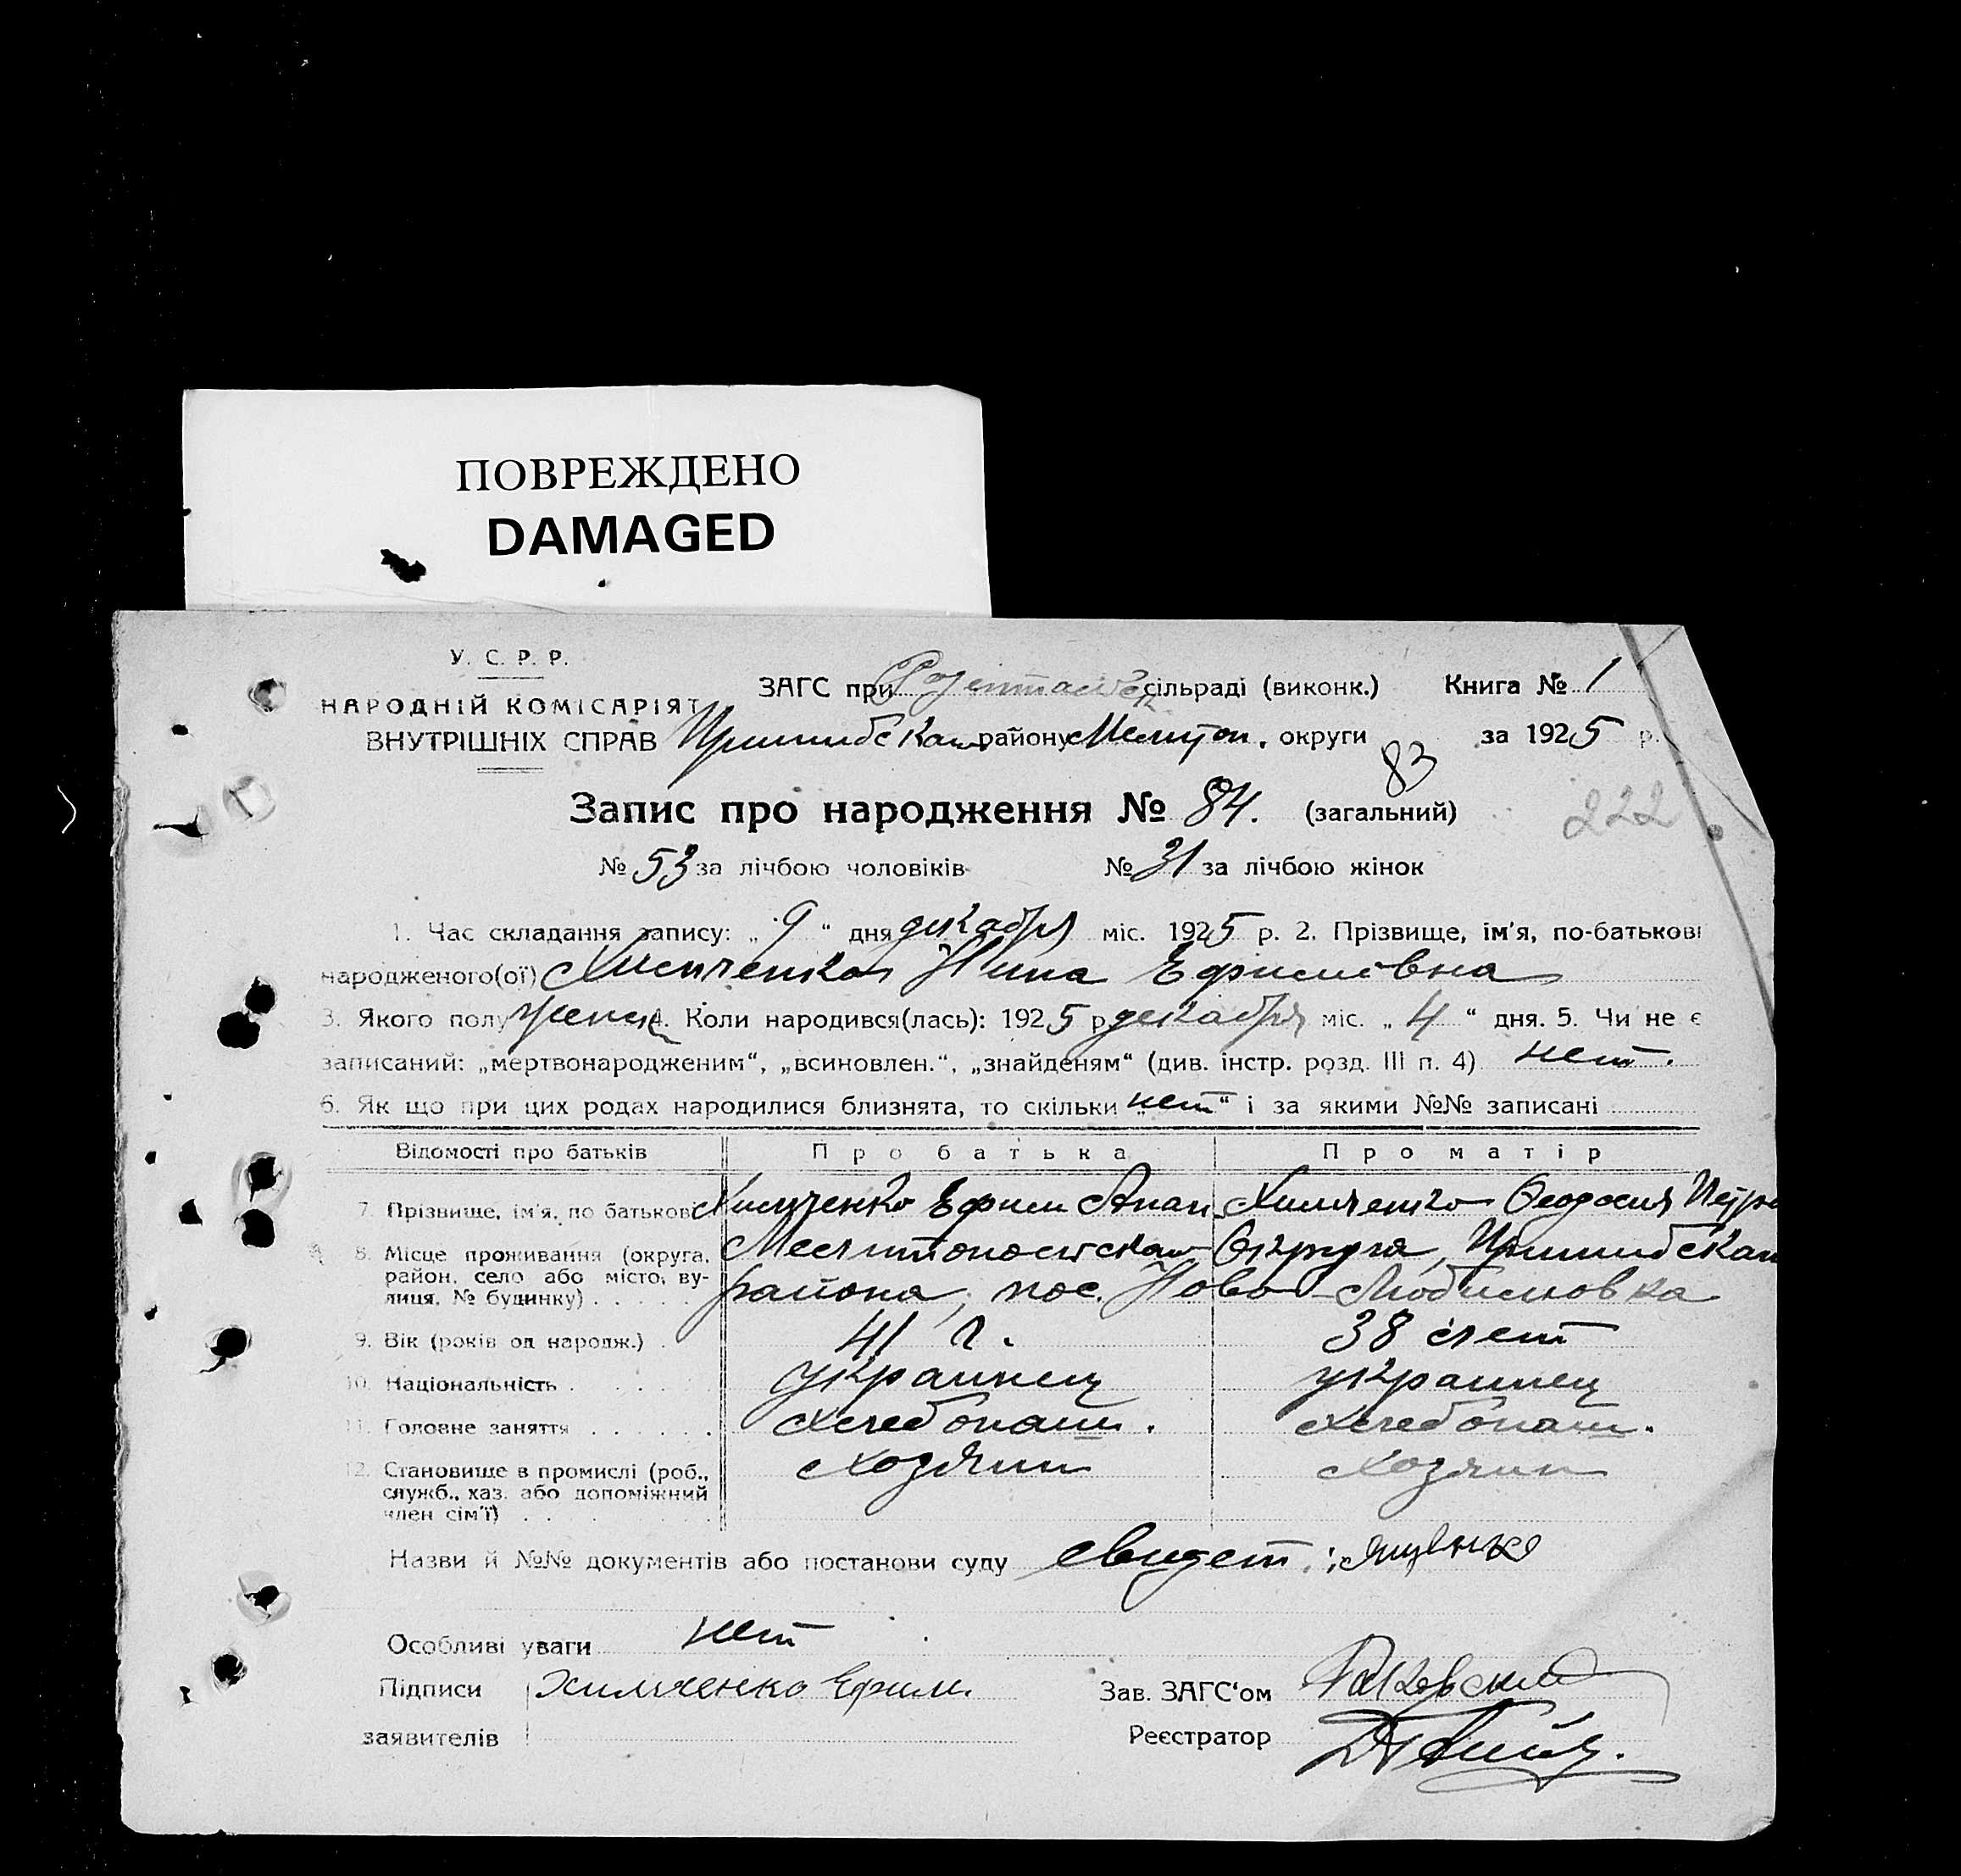 ПОВРЕЖДЕНО
DAMAGED
У. С. Р. Р.
НАРОДНІЙ КОМІСАРІЯТ
ВНУТРІШНІХ СПРАВ
ЗАГС при сільраді (виконк.) Книга № 1
Пришибскаго району Мелитоп. округи за 1925 р.
83
Запис про народження № 84. (загальний)
222
№ 53 за лічбою чоловіків № 31 за лічбою жінок
1. Час складання запису: „9“ дня декабря міс. 1925 р. 2. Прізвище, ім'я, по-батькові
народженого(ої) Химченко Нина Ефимовна
3. Якого полу женск 4. Коли народився(лась): 1925 р декабря міс. „4“ дня. 5. Чи не є
записаний: „мертвонародженим“, „всиновлен.“, „знайденям“ (див. інстр. розд. III п. 4) нет.
6. Як що при цих родах народилися близнята, то скільки „нет“ і за якими №№ записані
Відомості про батьків Про батька Про матір
7. Прізвище, ім'я, по батькові Химченко Ефим Апан. Химченко Феодосия Петро
8. Місце проживання (округа, район, село або місто, вулиця, № будинку) Мелитопольская Округа, Пришибскаго
района, пос. Ново-Любимовка
9. Вік (років од народж.) 41 г. 38 лет
10. Національність украинец украинец
11. Головне заняття хлебопаш. хлебопаш.
12. Становище в промислі (роб., служб., хаз. або допоміжний член сім'ї) хозяин хозяин
Назви й №№ документів або постанови суду свидет.:
Особливі уваги нет
Підписи Химченко Ефим. Зав. ЗАГС‘ом Раковский
заявителів Реєстратор